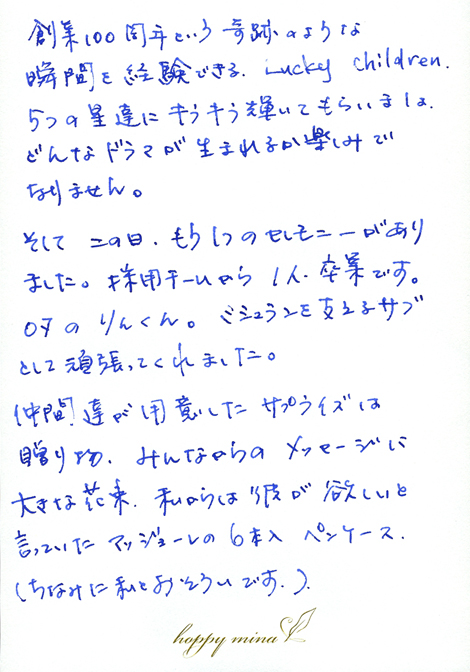 創業100周年という奇跡のような
瞬間を経験できる、Lucky Children.
5つの星達にキラキラ輝いてもらいましょ。
どんなドラマが生まれるか楽しみで
なりません。
そして この日、もう1つのセレモニーがあり
ました。採用チームから 1人、卒業です。
07の りんくん。ミシュランを支えるサブ
として頑張ってくれました。
仲間達が用意したサプライズは
贈り物、みんなからの メッセージに
大きな花束、私からは彼が欲しいと
言っていた アッジョーレの 6本入 ペンケース。
(ちなみに私とおそろいです。)
happy mina